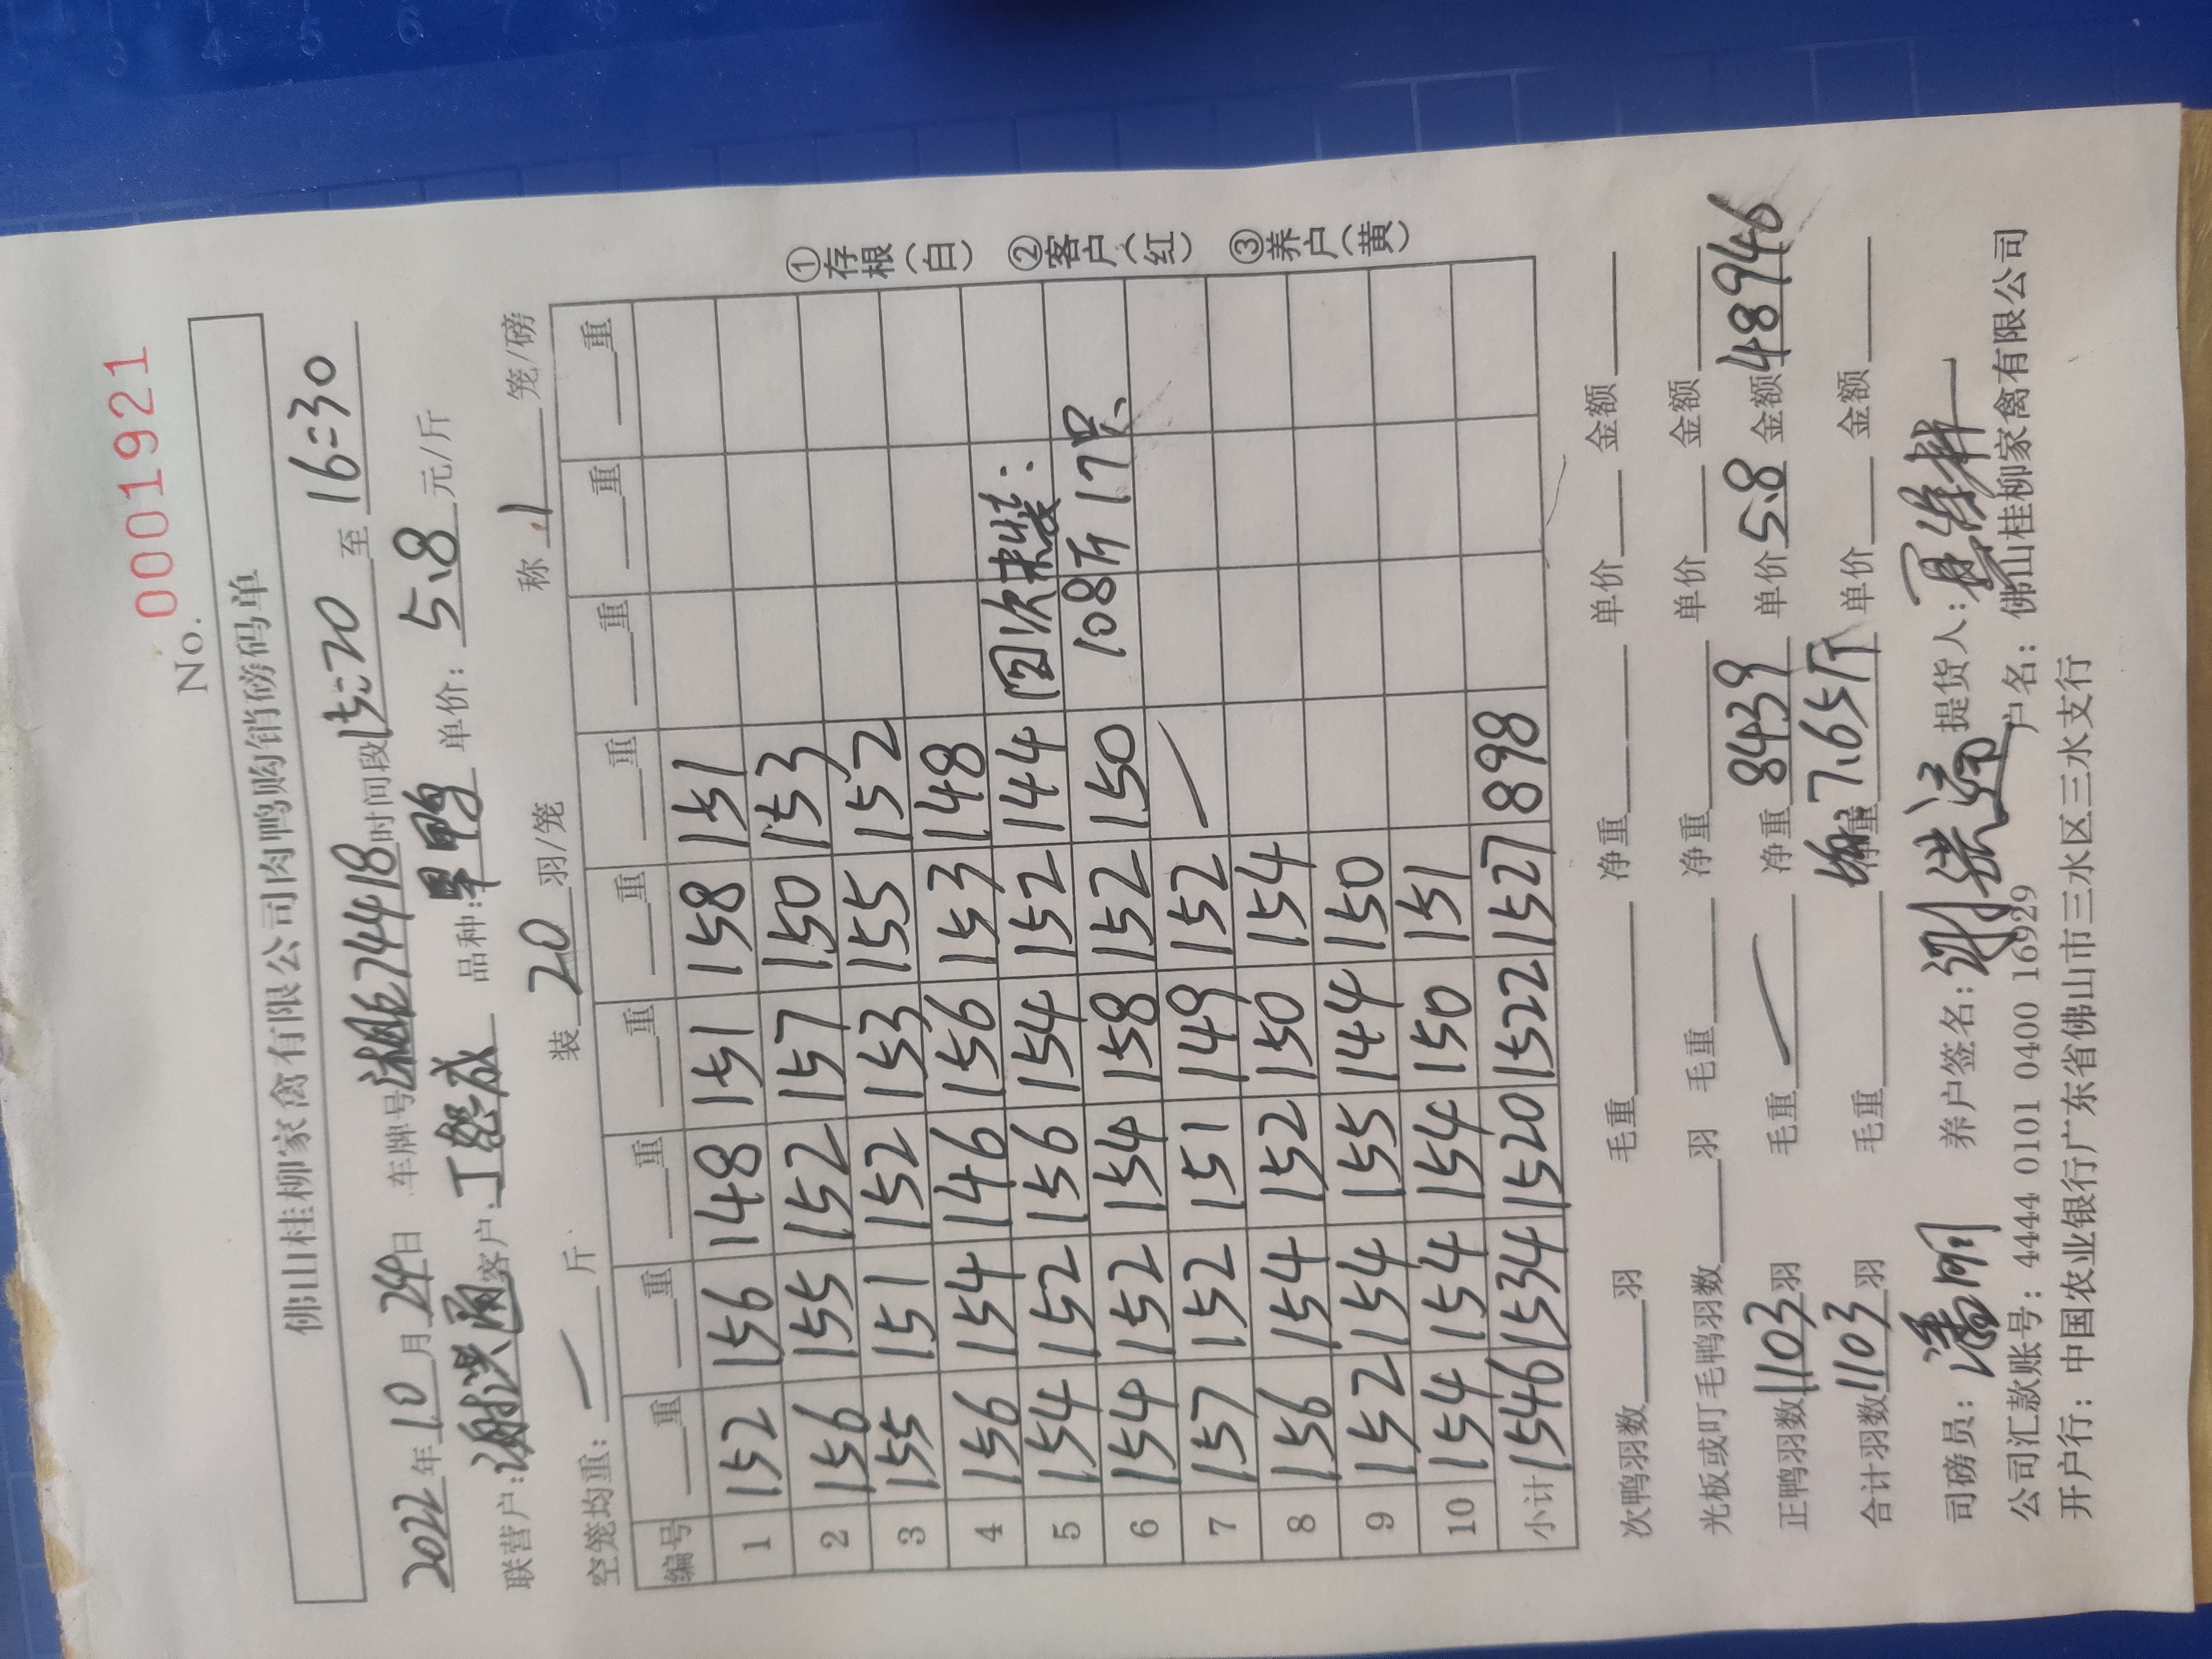 No. 0001921
佛山桂柳家禽有限公司肉鸭购销磅码单
2022年10月24日 车牌号 74418 时间段15:20至16:30
联营户:谢洪通 客户:丁 成 品种:旱鸭 单价:5.8元/斤
空笼均重:一斤 装20羽/笼 称1笼/磅
编号 重 重 重 重 重 重 重 重 重
1 152 156 148 151 158 151
2 156 155 152 157 150 153
3 155 151 152 153 155 152
4 156 154 146 156 153 148
5 154 152 156 154 152 144 回次未装:
6 154 152 154 158 152 150 108斤17只
7 157 152 151 149 152 —
8 156 154 152 150 154
9 152 154 155 144 150
10 154 154 154 150 151
小计 1546 1534 1520 1522 1527 898
①存根(白) ②客户(红) ③养户(黄)
次鸭羽数 羽 毛重 净重 单价 金额
光板或叮毛鸭羽数 羽 毛重 净重 单价 金额
正鸭羽数1103羽 毛重— 净重8439 单价5.8 金额48946
合计羽数1103羽 毛重 均重7.65斤 单价 金额
司磅员:潘明 养户签名:谢洪通 提货人:
公司汇款账号:4444 0101 0400 16929 户名:佛山桂柳家禽有限公司
开户行:中国农业银行广东省佛山市三水区三水支行